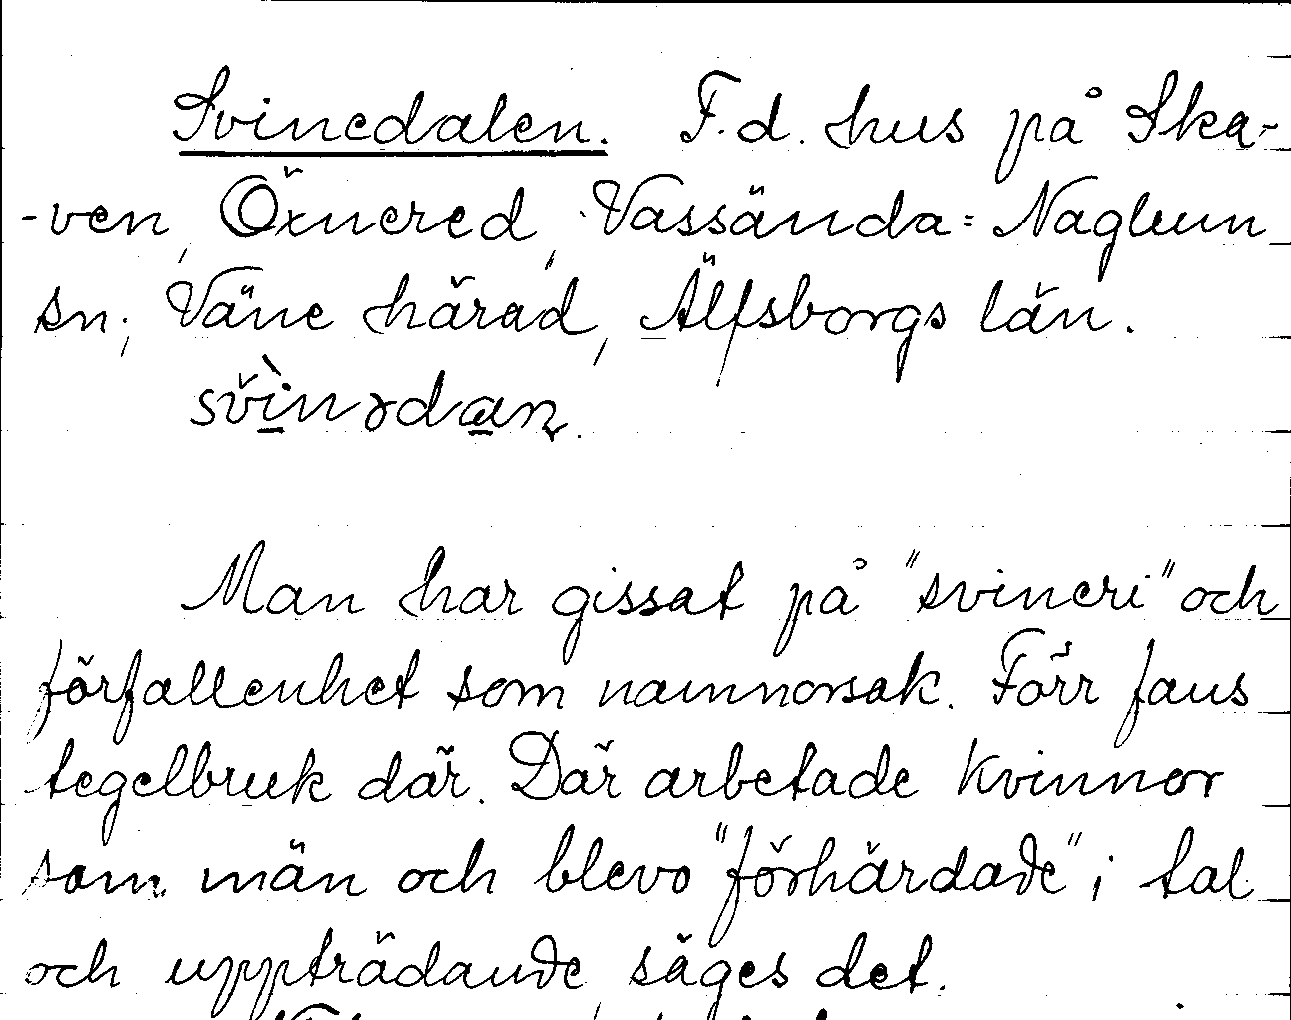 Svinedalen. F.d. hus på Ska-
-ven, Öxnered, Vassända=Naglum
sn; Väne härad, Älfsborgs län.
Man har gissat på "svineri" och
förfallenhet som namnorsak. Förr fans
tegelbruk där. Där arbetade kvinnor
som män och blevo "förhärdade" i tal
och uppträdande, säges det.